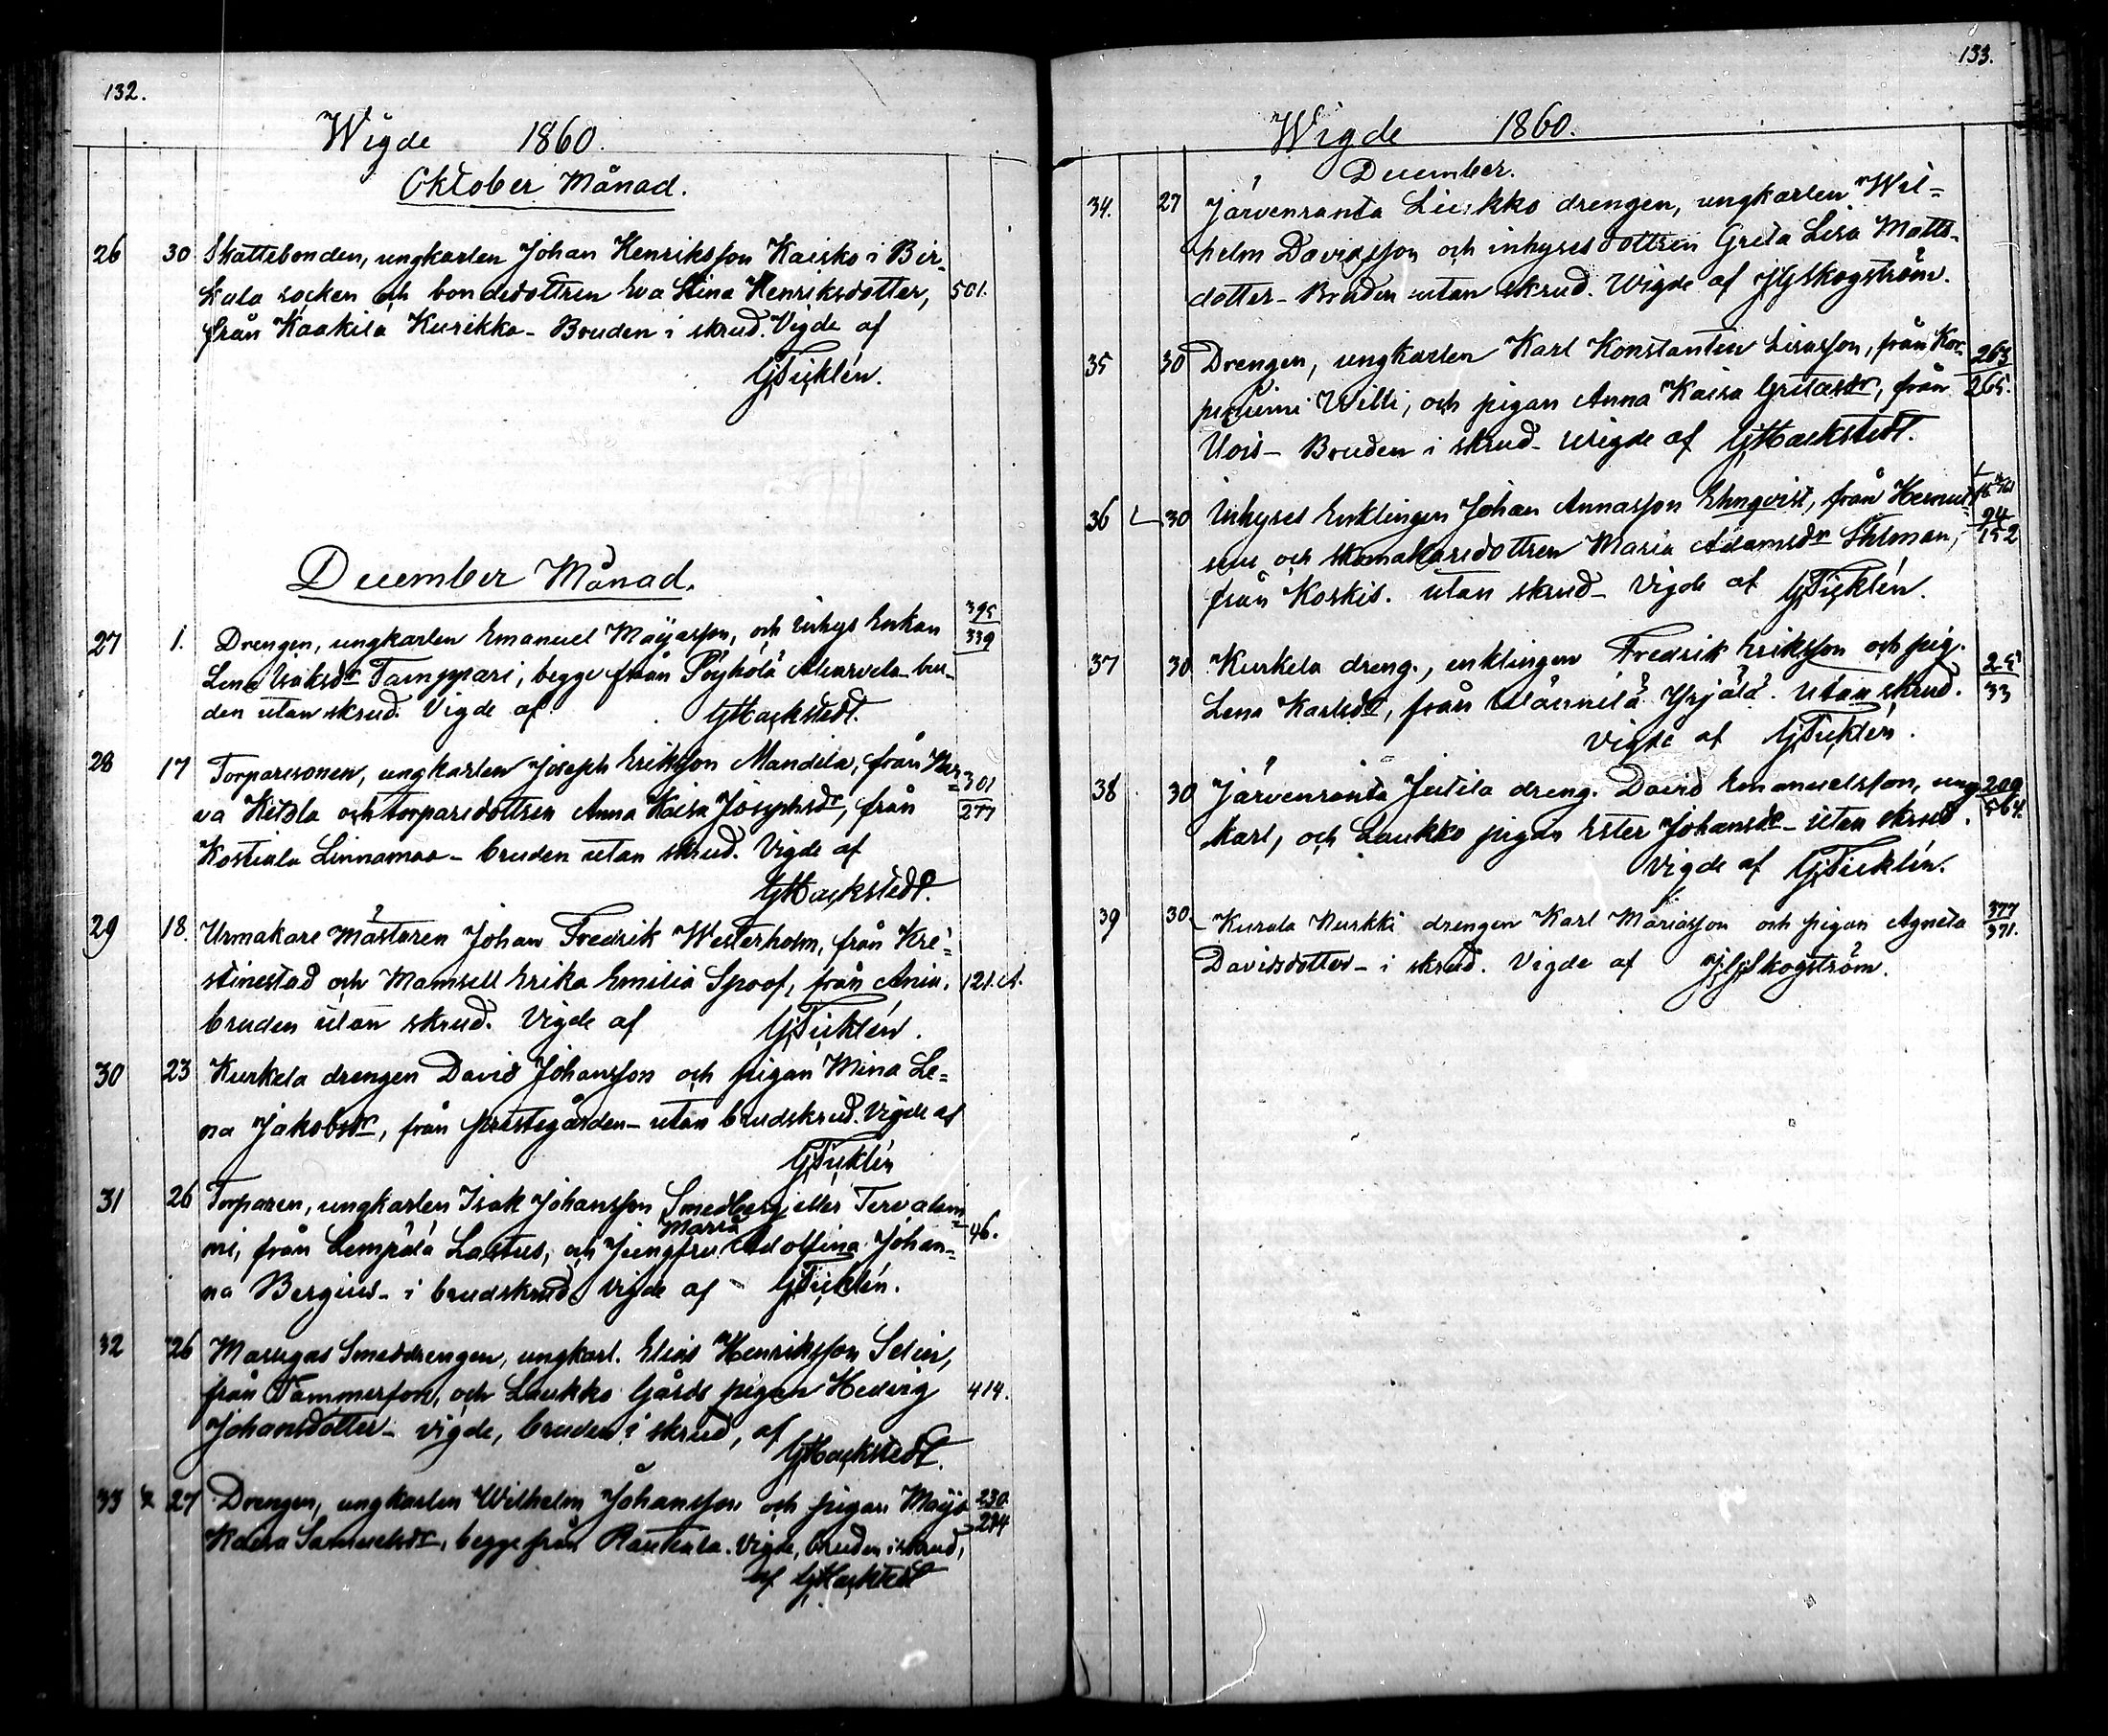 132.
Wigde 1860.
Oktober Månad.
26 30 Skattebonden, ungkarlen Johan Henriksson Kaisko i Bir-
kala socken och bondedottren Eva Stina Henriksdotter, 501.
från Kaakila Kurikka - Bruden i skrud. Vigde af
GTicklén.
December Månad.
27 1. Drengen, ungkarlen Emanuel Maijasson, och Inhys Enkan 395
Lena Isaksdr Tamppari, begge från Pöyhölä Alarvela - bru- 339
den utan skrud. Vigde af GHackstedt.
28 17 Torparesonen, ungkarlen Joseph Eriksson Mandila, från Nar- 301
va Ketola och torparedottren Anna Kaisa Josephsdr, från 277
Kostiala Linnamaa - bruden utan skrud. Vigde af
GHackstedt.
29 18. Urmakare Mästaren Johan Fredrik Westerholm, från Kri-
stinestad och Mamsell Erika Emilia Spoof, från Ania. 121. A.
bruden utan skrud. Vigde af GTicklén.
30 23 Kurkela drengen David Johansson och pigan Mina Le-
na Jakobsdr, från prestegården - utan brudskrud. Vigde af
GTicklén
31 26 Torparen, ungkarlen Isak Johansson Smedberg eller Tervalam-
Maria
mi, från Lempälä Lastus, och Jungfru Adolfina Johan- 46.
na Bergius - i brudskrud Vigde af - GTicklén.
32 26 Masugns Smeddrengen, ungkarl. Elias Henriksson Selin,
från Tammerfors, och Laukko Gårds pigan Hedvig 414.
Johansdotter - vigde, bruden i skrud, af
GHackstedt.
33 27 Drengen, ungkarlen Wilhelm Johansson och pigan Maija 230
Kaisa Samuelsdr, begge från Rautiala. Vigde, bruden i skrud, 234
af GHackstedt
133.
Wigde 1860.
December.
34. 27 Järvenranta Liukko drengen, ungkarlen Wil-
helm Davidsson och inhysesdottren Greta Lisa Matts-
dotter - Bruden utan skrud. Wigde af Skogström.
35 30 Drengen, ungkarlen Karl Konstantin Lisasson, från Kor- 263
piniemi Willi, och pigan Anna Kaisa Gretasdr, från 265.
Uois - Bruden i skrud - Wigde af GHackstedt.
36 30 Inhyses Enklingen Johan Annasson Ehnqvist, från Hermi- 94
och skomakaredottren Maria Adamsdr 152
från Koskis. utan skrud - Vigde af GTicklén.
37 30 Kurkela dreng., enklingen Fredrik Eriksson och pig. 25
Lena Karlsdr, från Männilä Yrjälä. Utan skrud. 33
Vigde af GTicklén.
38 30 Järvenranta Jutila dreng. David Emanuelsson, ung- 209
karl, och Laukko pigan Ester Johansdr - Utan skrud. 564.
Vigde af GTicklén.
39 30. Kurala Nurkki drengen Karl Mariasson och pigan Agneta 377
Davidsdotter - i skrud. Vigde af Skogström. 371.